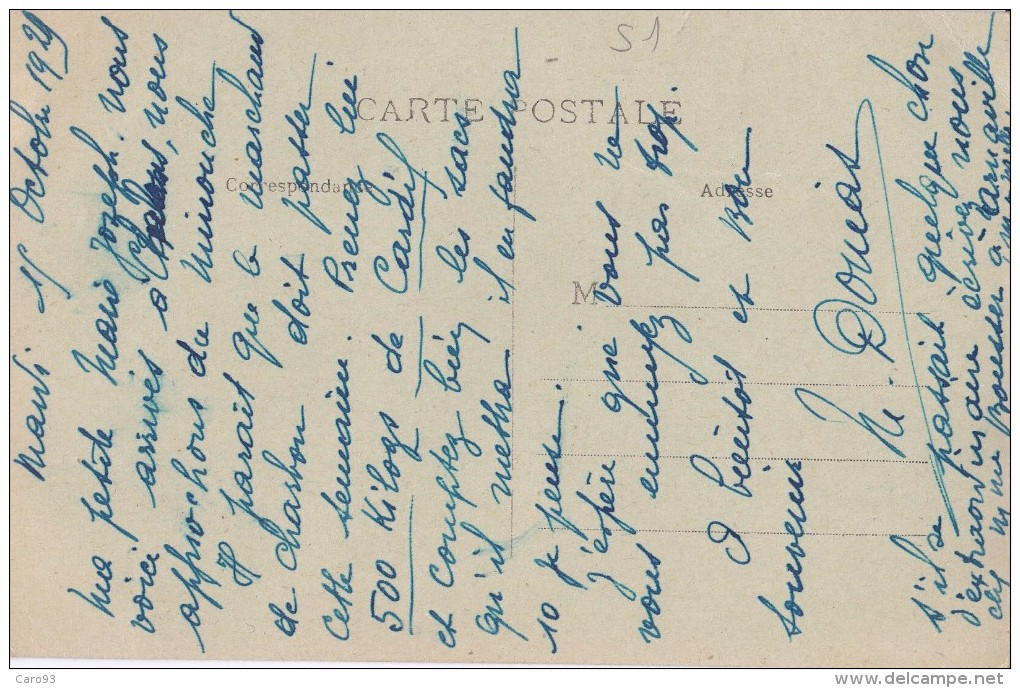 S1
CARTE POSTALE
Correspondance
Adresse
M
Mardi 15 Octobre 1929
Ma petite Marie Jozeph. Nous
voici arrivés à Chalons, nous
approchons de Minouche
Il parait que le marchand
de charbon doit passer
Cette semaine. Prenez lui
500 Kilogs de Cardif
et comptez bien les sacs
qu'il mettra il en faudra
10 je pense.
J'espère que vous ne
vous ennuyez pas trop.
A bientôt et Bon
Souvenir
M. Donias
s'il se passait quelque chose
d'extraordinaire écrivez nous
à Carnaville
Caro93
www.delcampe.net